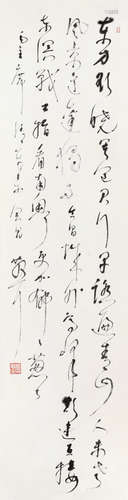 東方欲曉莫道君行早踏遍青山人未老
風景這邊獨好會昌城外高峰顛連直接
東溟戰士指看南粵更加鬱鬱葱葱
毛主席清平樂會昌